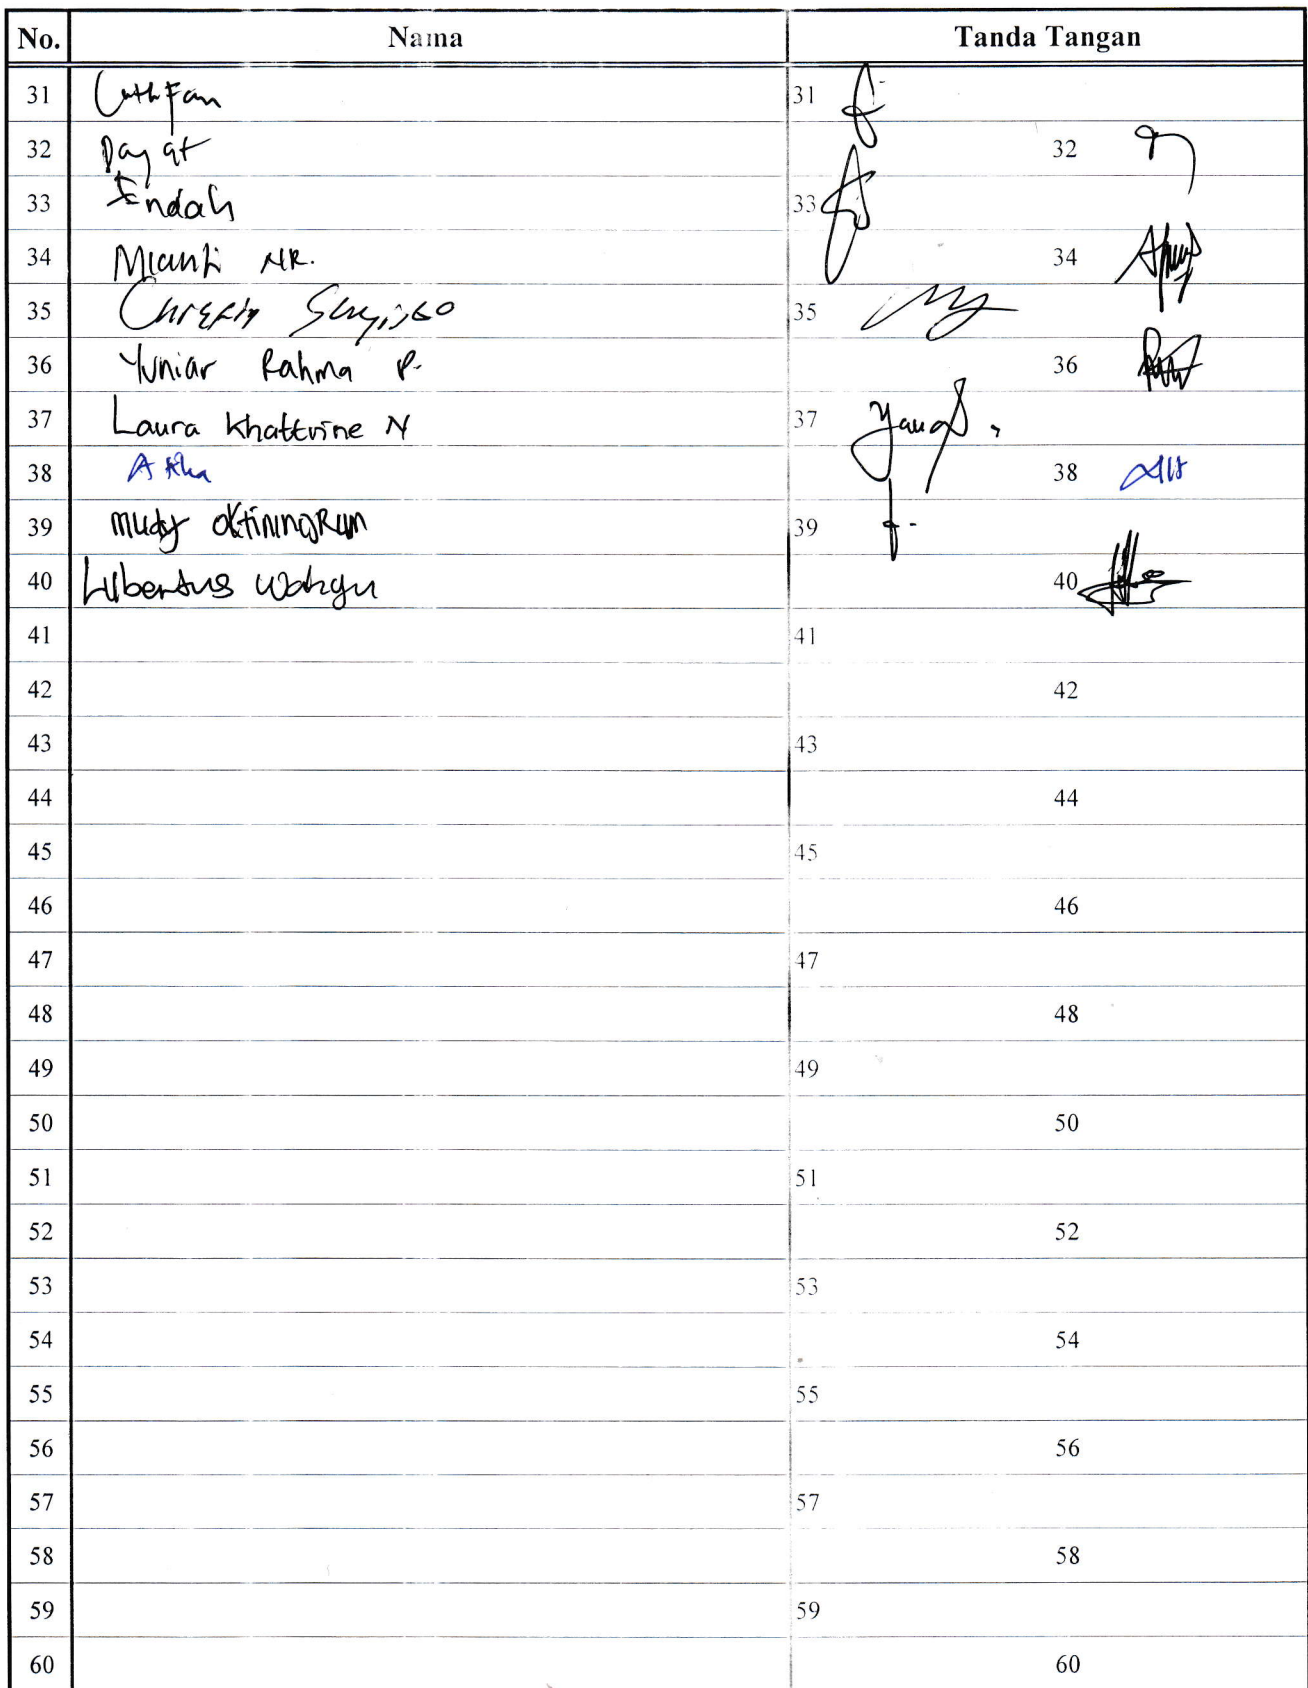 No. Nama Tanda Tangan
31 Luthfan 31
32 Dayat 32
33 Endah 33
34 Mianti NR. 34
35 35
36 Yuniar Rahma P. 36
37 Laura Khattrine N 37
38 38
39 mudy oktiningRum 39
40 Libertus Wahyu 40
41 41
42 42
43 43
44 44
45 45
46 46
47 47
48 48
49 49
50 50
51 51
52 52
53 53
54 54
55 55
56 56
57 57
58 58
59 59
60 60